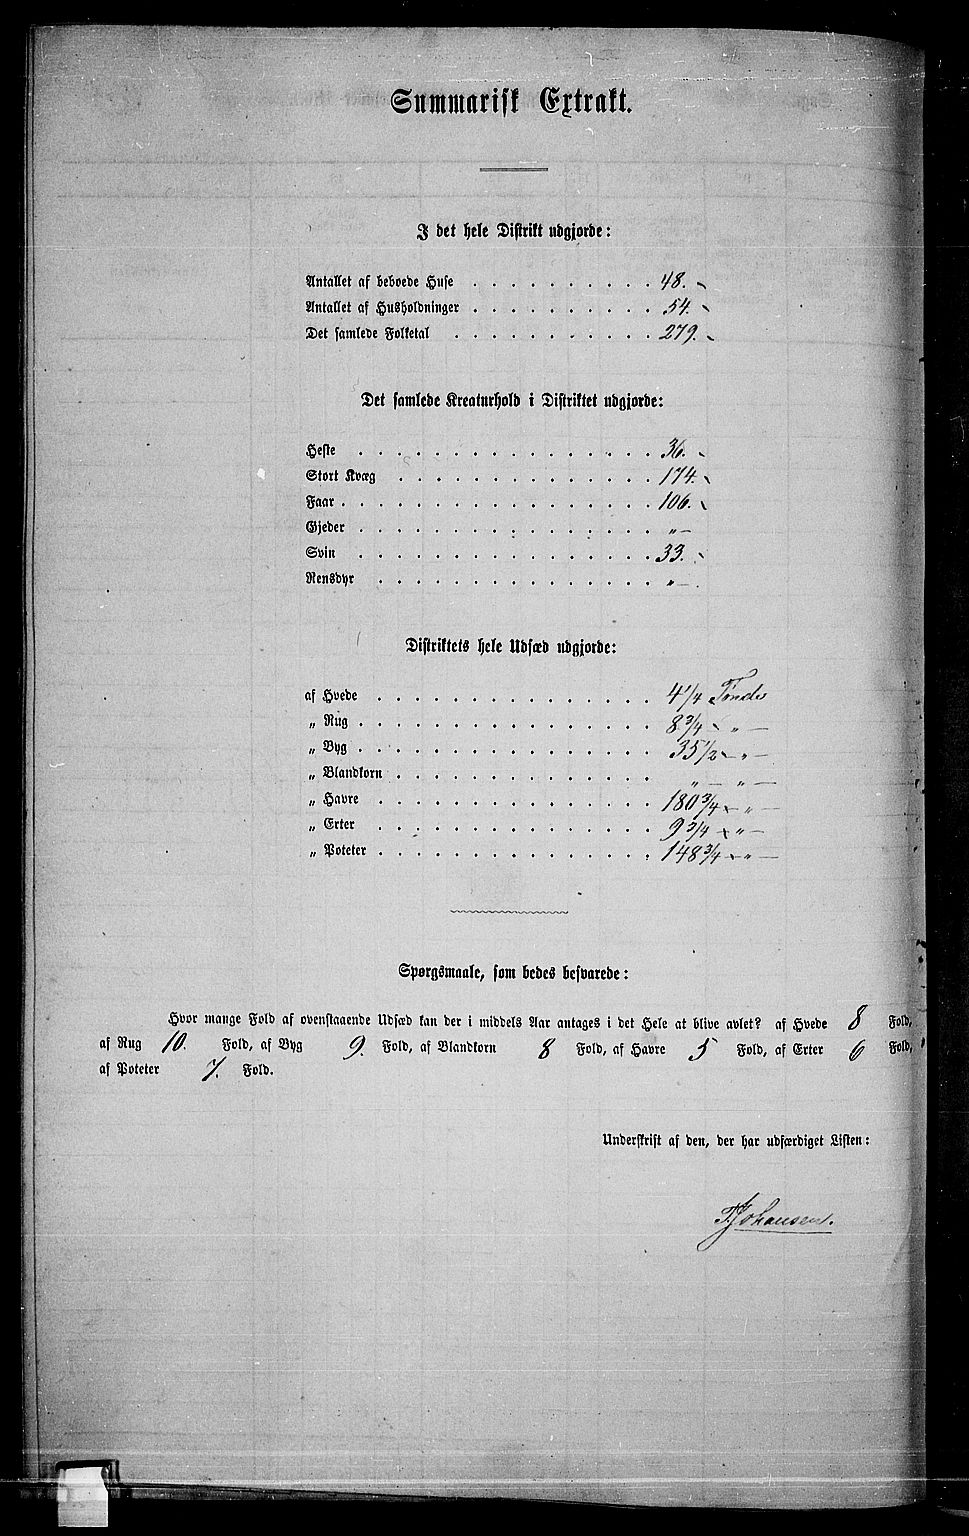 Summarisk Extrakt.
I det hele Distrikt udgjorde:
Antallet af beboede Huse . . . . . . . . . . 48.
Antallet af Husholdninger . . . . . . . . . . 54.
Det samlede Folketal . . . . . . . . . . . 279.
Det samlede Kreaturhold i Distriktet udgjorde:
Heste . . . . . . . . . . . . . . . 36.
Stort Kvæg . . . . . . . . . . . . . 174.
Faar . . . . . . . . . . . . . . . . 106.
Gjeder . . . . . . . . . . . . . . . „ —
Svin . . . . . . . . . . . . . . . 33.
Rensdyr . . . . . . . . . . . . . . „ —
Distriktets hele Udsæd udgjorde:
af Hvede . . . . . . . . . . . . . . 4 1/4 Tønder
„ Rug . . . . . . . . . . . . . . . 8 3/4 - „ —
„ Byg . . . . . . . . . . . . . . . 35 1/2 - „ —
„ Blandkorn . . . . . . . . . . . . . „ — „ —
„ Havre . . . . . . . . . . . . . . 180 3/4 - „ —
„ Erter . . . . . . . . . . . . . . 9 3/4 - „ —
„ Poteter . . . . . . . . . . . . . . 148 3/4 - „ —
Spørgsmaale, som bedes besvarede:
Hvor mange Fold af ovenstaaende Udsæd kan der i middels Aar antages i det Hele at blive avlet? af Hvede 8 Fold,
af Rug 10. Fold, af Byg 9. Fold, af Blandkorn 8 Fold, af Havre 5 Fold, af Erter 6 Fold,
af Poteter 7. Fold.
Underskrift af den, der har udfærdiget Listen:
Johansen.